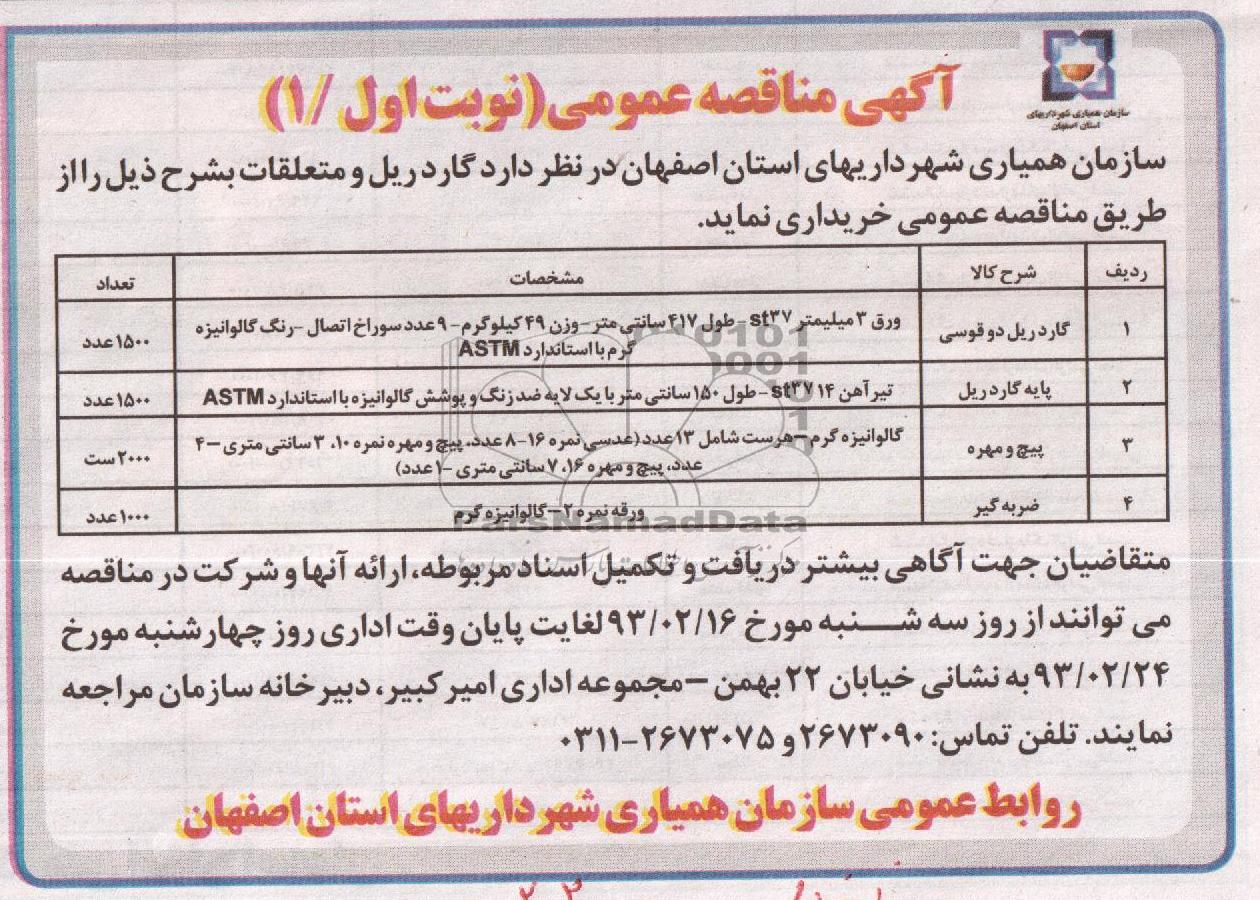 سازمان همیاری شهرداریهای
استان اصفهان
آگهی مناقصه عمومی(نوبت اول /۱)
سازمان همیاری شهرداریهای استان اصفهان در نظر دارد گاردریل و متعلقات بشرح ذیل را از
طریق مناقصه عمومی خریداری نماید.
ردیف شرح کالا مشخصات تعداد
۱ گاردریل دو قوسی ورق ۳ میلیمتر st۳۷ – طول ۴۱۷ سانتی متر – وزن ۴۹ کیلوگرم – ۹ عدد سوراخ اتصال – رنگ گالوانیزه
گرم با استاندارد ASTM ۱۵۰۰ عدد
۲ پایه گاردریل تیرآهن ۱۴ st۳۷ – طول ۱۵۰ سانتی متر با یک لایه ضد زنگ و پوشش گالوانیزه با استاندارد ASTM ۱۵۰۰ عدد
۳ پیچ و مهره گالوانیزه گرم – هرست شامل ۱۳ عدد (عدسی نمره ۱۶- ۸ عدد، پیچ و مهره نمره ۱۰، ۳ سانتی متری – ۴
عدد، پیچ و مهره ۱۶، ۷ سانتی متری – ۱ عدد) ۲۰۰۰ ست
۴ ضربه گیر ورقه نمره ۲ – گالوانیزه گرم ۱۰۰۰ عدد
ParsNamadData
متقاضیان جهت آگاهی بیشتر دریافت و تکمیل اسناد مربوطه، ارائه آنها و شرکت در مناقصه
می توانند از روز سه شنبه مورخ ۹۳/۰۲/۱۶ لغایت پایان وقت اداری روز چهارشنبه مورخ
۹۳/۰۲/۲۴ به نشانی خیابان ۲۲ بهمن – مجموعه اداری امیر کبیر، دبیرخانه سازمان مراجعه
نمایند. تلفن تماس: ۲۶۷۳۰۹۰ و ۲۶۷۳۰۷۵-۰۳۱۱
روابط عمومی سازمان همیاری شهرداریهای استان اصفهان